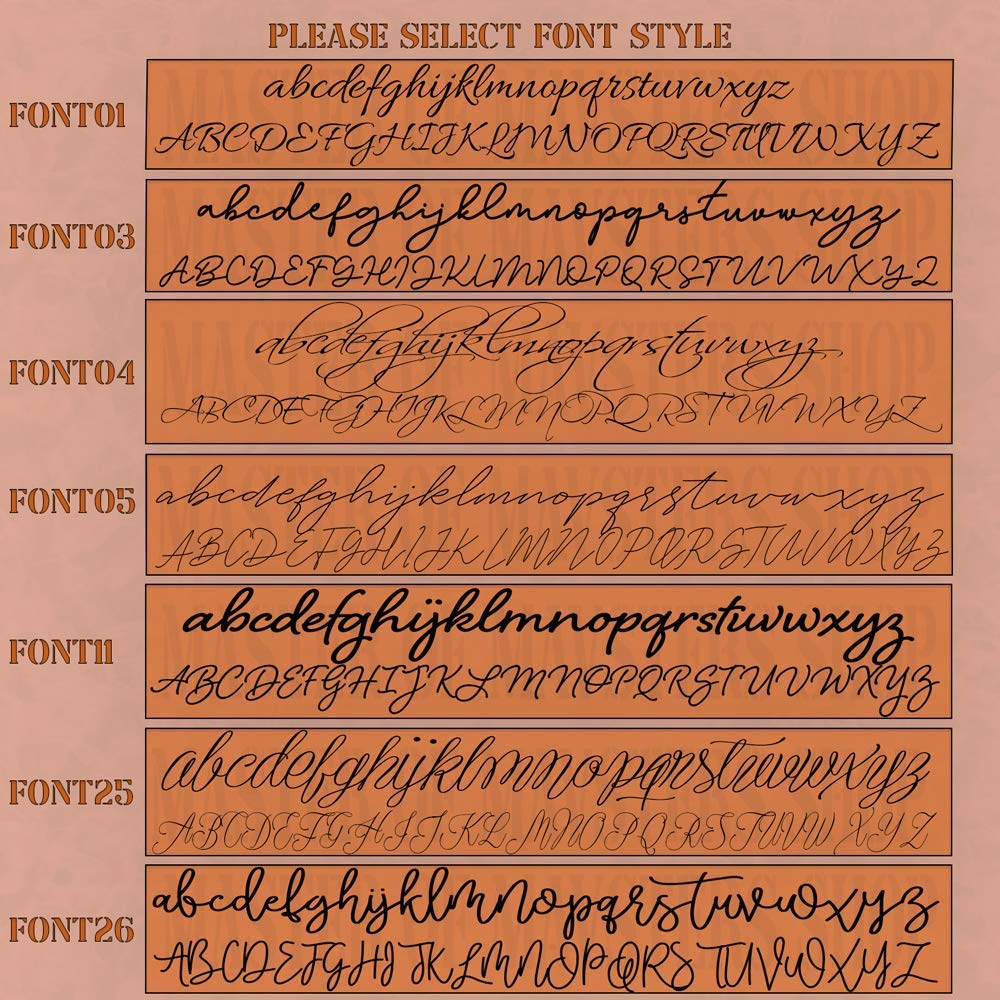 PLEASE SELECT FONT STYLE
FONT01
abcdefghijklmnopqrstuvwxyz
ABCDEFGHIJKLMNOPQRSTUVWXYZ
FONT03
abcdefghijklmnopqrstuvwxyz
ABCDEFGHIJKLMNOPQRSTUVWXYZ
FONT04
abcdefghijklmnopqrstuvwxyz
ABCDEFGHIJKLMNOPQRSTUVWXYZ
FONT05
abcdefghijklmnopqrstuvwxyz
ABCDEFGHIJKLMNOPQRSTUVWXYZ
FONT11
abcdefghijklmnopqrstuvwxyz
ABCDEFGHIJKLMNOPQRSTUVWXYZ
FONT25
abcdefghijklmnopqrstuvwxyz
ABCDEFGHIJKLMNOPQRSTUVWXYZ
FONT26
abcdefghijklmnopqrstuvwxyz
ABCDEFGHIJKLMNOPQRSTUVWXYZ